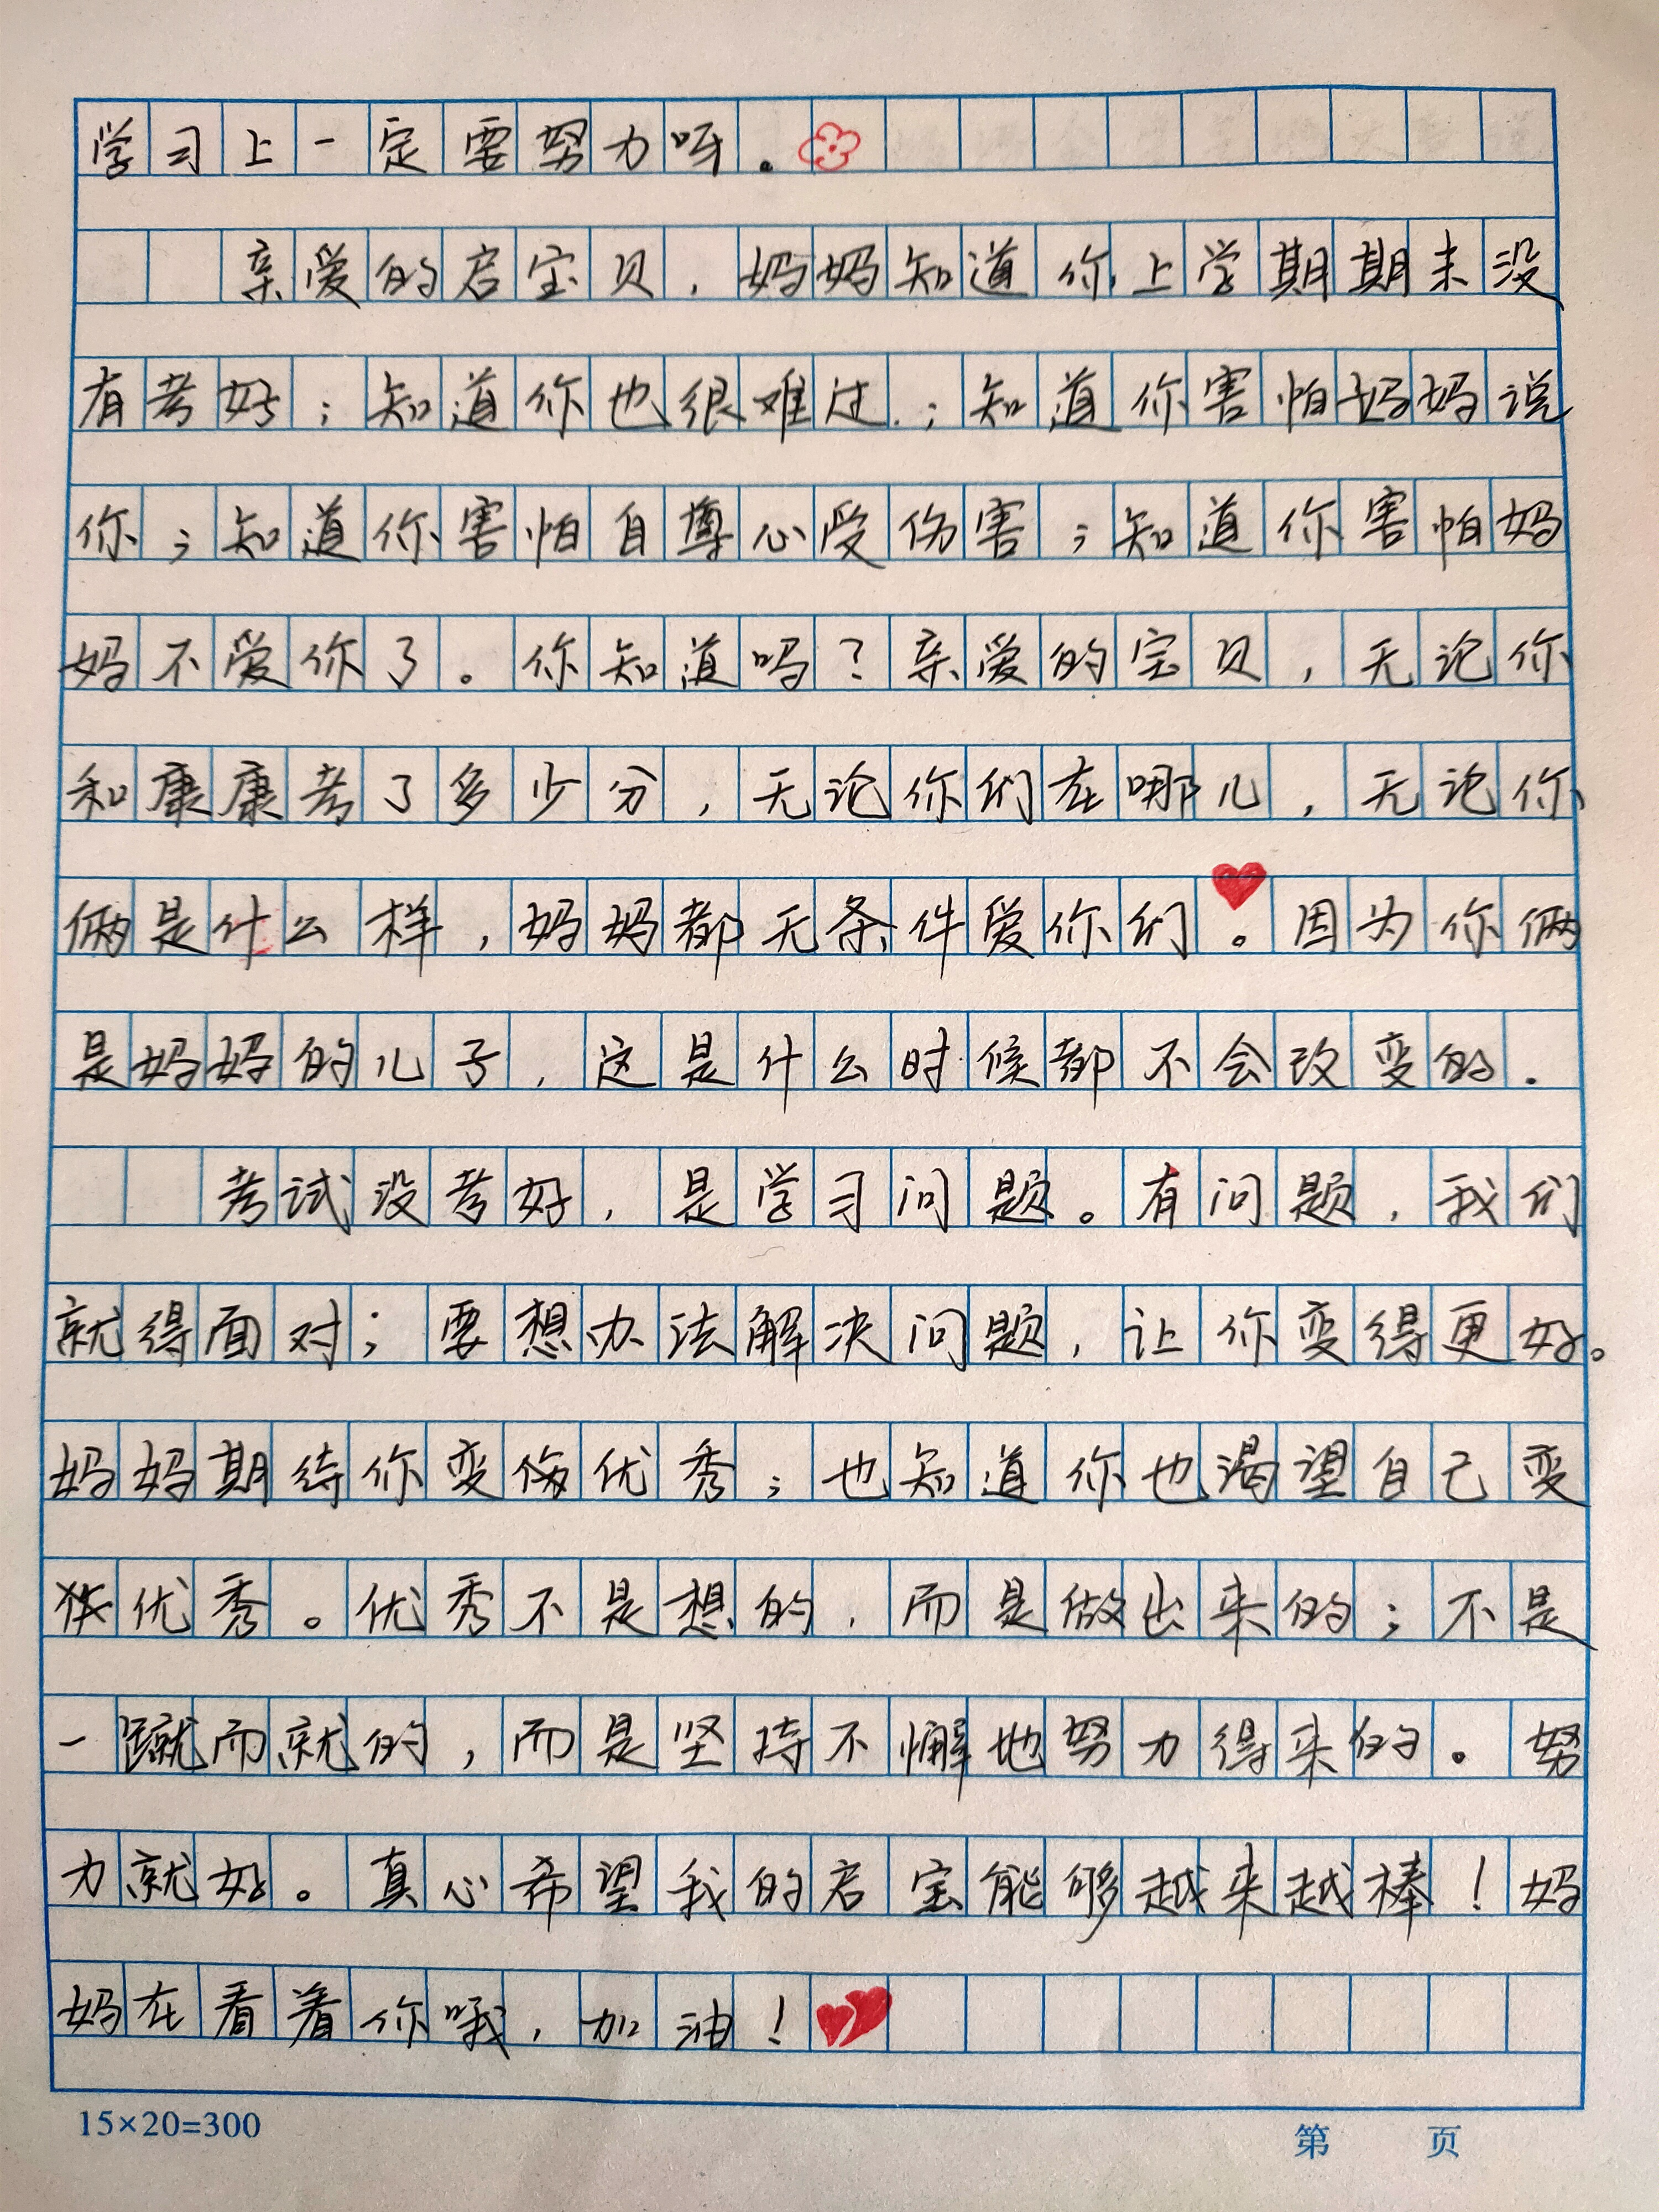 学习上一定要努力呀。
亲爱的启宝贝，妈妈知道你上学期期末没
有考好；知道你也很难过；知道你害怕妈妈说
你；知道你害怕自尊心受伤害；知道你害怕妈
妈不爱你了。你知道吗？亲爱的宝贝，无论你
和康康考了多少分，无论你们在哪儿，无论你
俩是什么样，妈妈都无条件爱你们。因为你俩
是妈妈的儿子，这是什么时候都不会改变的.
考试没考好，是学习问题。有问题，我们
就得面对；要想办法解决问题，让你变得更好。
妈妈期待你变优秀；也知道你也渴望自己变
优秀。优秀不是想的，而是做出来的；不是
一蹴而就的，而是坚持不懈地努力得来的。努
力就好。真心希望我的启宝能够越来越棒！妈
妈在看着你哦，加油！
15×20=300
第 页